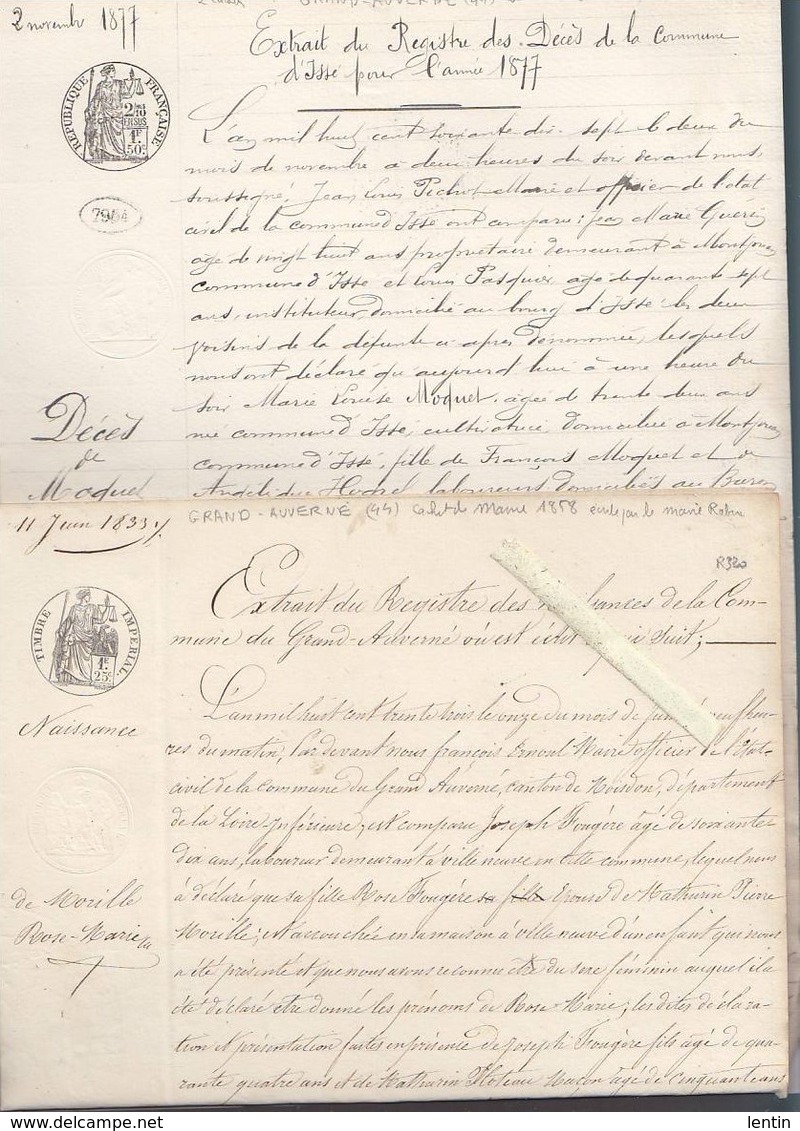 2 novembre 1877
GRAND-AUVERNE (44)
Extrait du Registre des Décès de la Commune
d'Issé pour l'année 1877
RÉPUBLIQUE FRANÇAISE
2/10
EN SUS
1F.
50c.
7954
L'an mil huit cent soixante dix-sept le deux du
mois de novembre à deux heures du soir devant nous,
soussigné, Jean Louis Pichot Maire et officier de l'état
civil de la commune d'Issé ont comparu : Jean Marie Guérin
âgé de vingt huit ans propriétaire demeurant à
commune d'Issé et Louis Pasquier, âgé de quarante sept
ans, instituteur domicilié au bourg d'Issé : les deux
voisins de la défunte ci après dénommée, lesquels
nous ont déclaré qu'aujourd'hui à une heure du
soir Marie Louise Moquet, âgée de trente deux ans
née commune d'Issé, cultivatrice, domiciliée à
commune d'Issé, fille de François Moquet et de
laboureurs domiciliés au
Décès
de
Moquet
11 Juin 1833
GRAND-AUVERNÉ (44) Cachet de Mairie 1858 écrite par le maire
R320
TIMBRE IMPÉRIAL
1F.
25c.
Extrait du Registre des de la Com-
mune du Grand-Auverné où est écrit suit;
Naissance
L'an mil huit cent trente trois le onze du mois de juin neuf heu-
res du matin, Par devant nous françois Ernoul Maire officier de l'état-
civil de la commune du Grand Auverné, canton de Moisdon, département
de la Loire-Inférieure, est comparu Joseph Fougère âgé de soixante
dix ans, laboureur demeurant à ville neuve en cette commune, lequel nous
à déclaré que sa fille Rose Fougère sa fille Epouse de Mathurin Pierre
Morille; est accouchée en sa maison à ville neuve d'un enfant qui nous
a été présenté et que nous avons reconnu être du sexe féminin auquel il a
été déclaré être donné les prénoms de Rose-Marie; les dites déclara-
tion et présentation faites en présence de Joseph Fougère fils âgé de qua-
rante quatre ans et de Mathurin Ploteau Maçon âgé de cinquante ans
de Morille
Rose-Marie
lentin